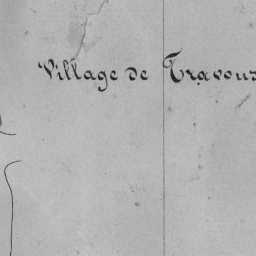 Village de Travous